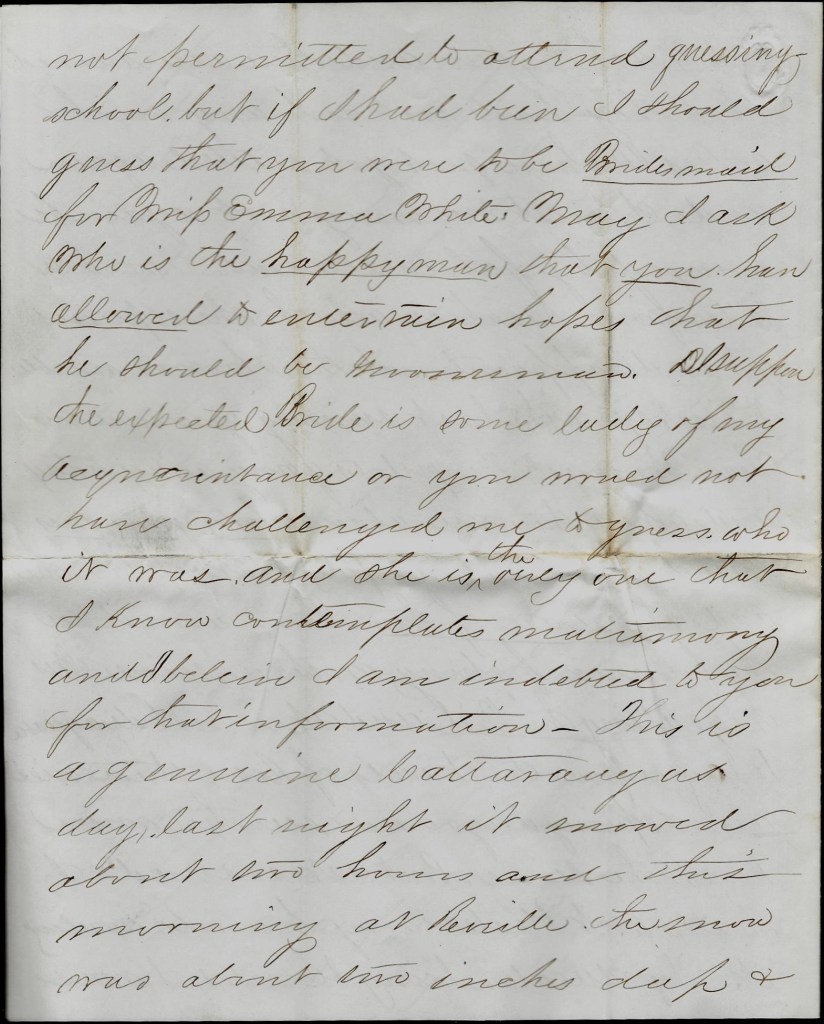 not permitted to attend guessing
school. but if I had been I should
guess that you were to be Bridesmaid
for Miss Emma White. May I ask
who is the happy man that you have
allowed to entertain hopes that
he should be groomsman. I suppose
the expected Bride is some lady of my
acquaintance or you would not
have challenged me to guess. who
it was. and she is the only one that
I know contemplates matrimony
and I believe I am indebted to you
for that information – This is
a genuine Cattaraugus
day, last night it snowed
about two hours and this
morning at Reville the snow
was about two inches deep &